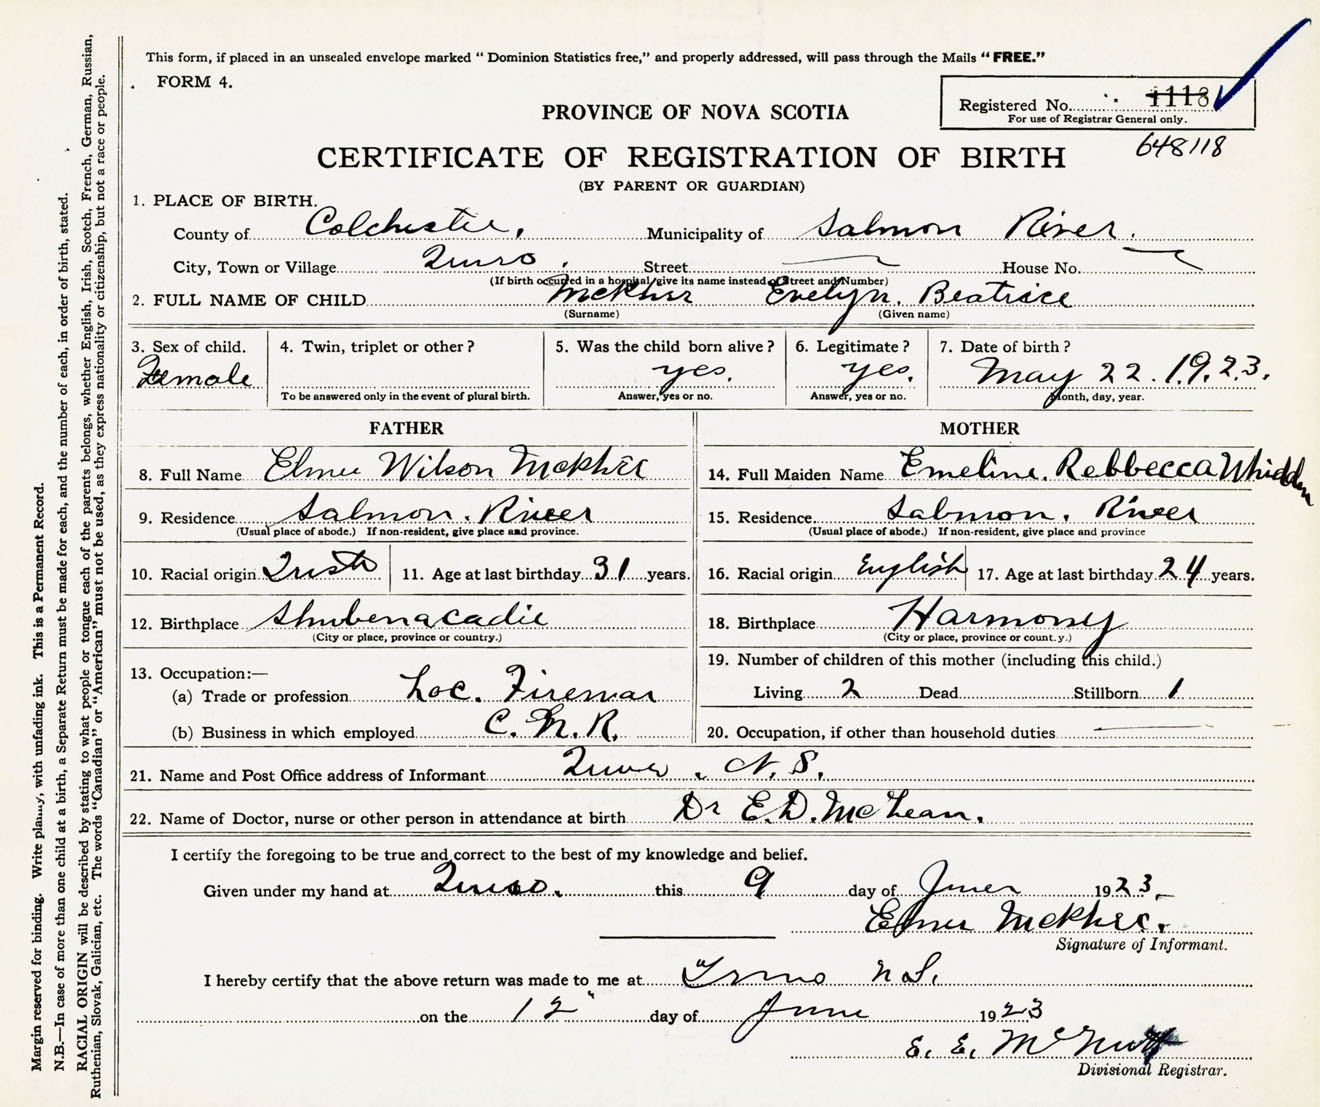 This form, if placed in an unsealed envelope marked "Dominion Statistics free," and properly addressed, will pass through the Mails "FREE."
FORM 4.
Registered No. 1118
For use of Registrar General only.
648118
PROVINCE OF NOVA SCOTIA
CERTIFICATE OF REGISTRATION OF BIRTH
(BY PARENT OR GUARDIAN)
1. PLACE OF BIRTH.
County of Colchester, Municipality of Salmon River.
City, Town or Village Truro. Street House No.
(If birth occurred in a hospital give its name instead of Street and Number)
2. FULL NAME OF CHILD Evelyn. Beatrice
(Surname) (Given name)
3. Sex of child. 4. Twin, triplet or other? 5. Was the child born alive? 6. Legitimate? 7. Date of birth?
Female yes. yes. May 22. 1923.
To be answered only in the event of plural birth. Answer, yes or no. Answer, yes or no. Month, day, year.
FATHER MOTHER
8. Full Name Elmer Wilson 14. Full Maiden Name Emeline. Rebbecca Whidden
9. Residence Salmon. River 15. Residence Salmon. River
(Usual place of abode.) If non-resident, give place and province. (Usual place of abode.) If non-resident, give place and province
10. Racial origin Irish 11. Age at last birthday 31 years. 16. Racial origin English 17. Age at last birthday 24 years.
12. Birthplace Shubenacadie 18. Birthplace Harmony
(City or place, province or country.) (City or place, province or count.y.)
13. Occupation:— 19. Number of children of this mother (including this child.)
(a) Trade or profession Loc. Fireman Living 2 Dead Stillborn 1
(b) Business in which employed C. N. R. 20. Occupation, if other than household duties
21. Name and Post Office address of Informant Truro, N. S.
22. Name of Doctor, nurse or other person in attendance at birth Dr E. D. McLean.
I certify the foregoing to be true and correct to the best of my knowledge and belief.
Given under my hand at Truro. this 9 day of June 1923.
Elmer
Signature of Informant.
I hereby certify that the above return was made to me at Truro N S.
on the 12" day of June 1923
E. E. McNutt
Divisional Registrar.
Margin reserved for binding. Write plainly, with unfading ink. This is a Permanent Record.
N.B.—In case of more than one child at a birth, a Separate Return must be made for each, and the number of each, in order of birth, stated.
RACIAL ORIGIN will be described by stating to what people or tongue each of the parents belongs, whether English, Irish, Scotch, French, German, Russian,
Ruthenian, Slovak, Galician, etc. The words "Canadian" or "American" must not be used, as they express nationality or citizenship, but not a race or people.